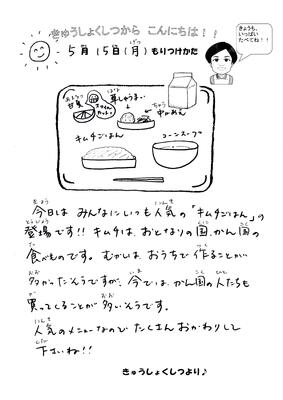 きゅうしょくしつから こんにちは！！
きょうも、
いっぱい
たべてね！！
5月15日(月)もりつけかた
キムチごはん
コーンスープ
今日は みんなにいつも人気の「キムチごはん」の
登場です!! キムチは、おとなりの国、かん国の
食べものです。むかしは、おうちで作ることが
多かったそうですが、今では、かん国の人たちも
買ってくることが多いそうです。
人気のメニューなのでたくさんおかわりして
下さいね!!
きゅうしょくしつより♪